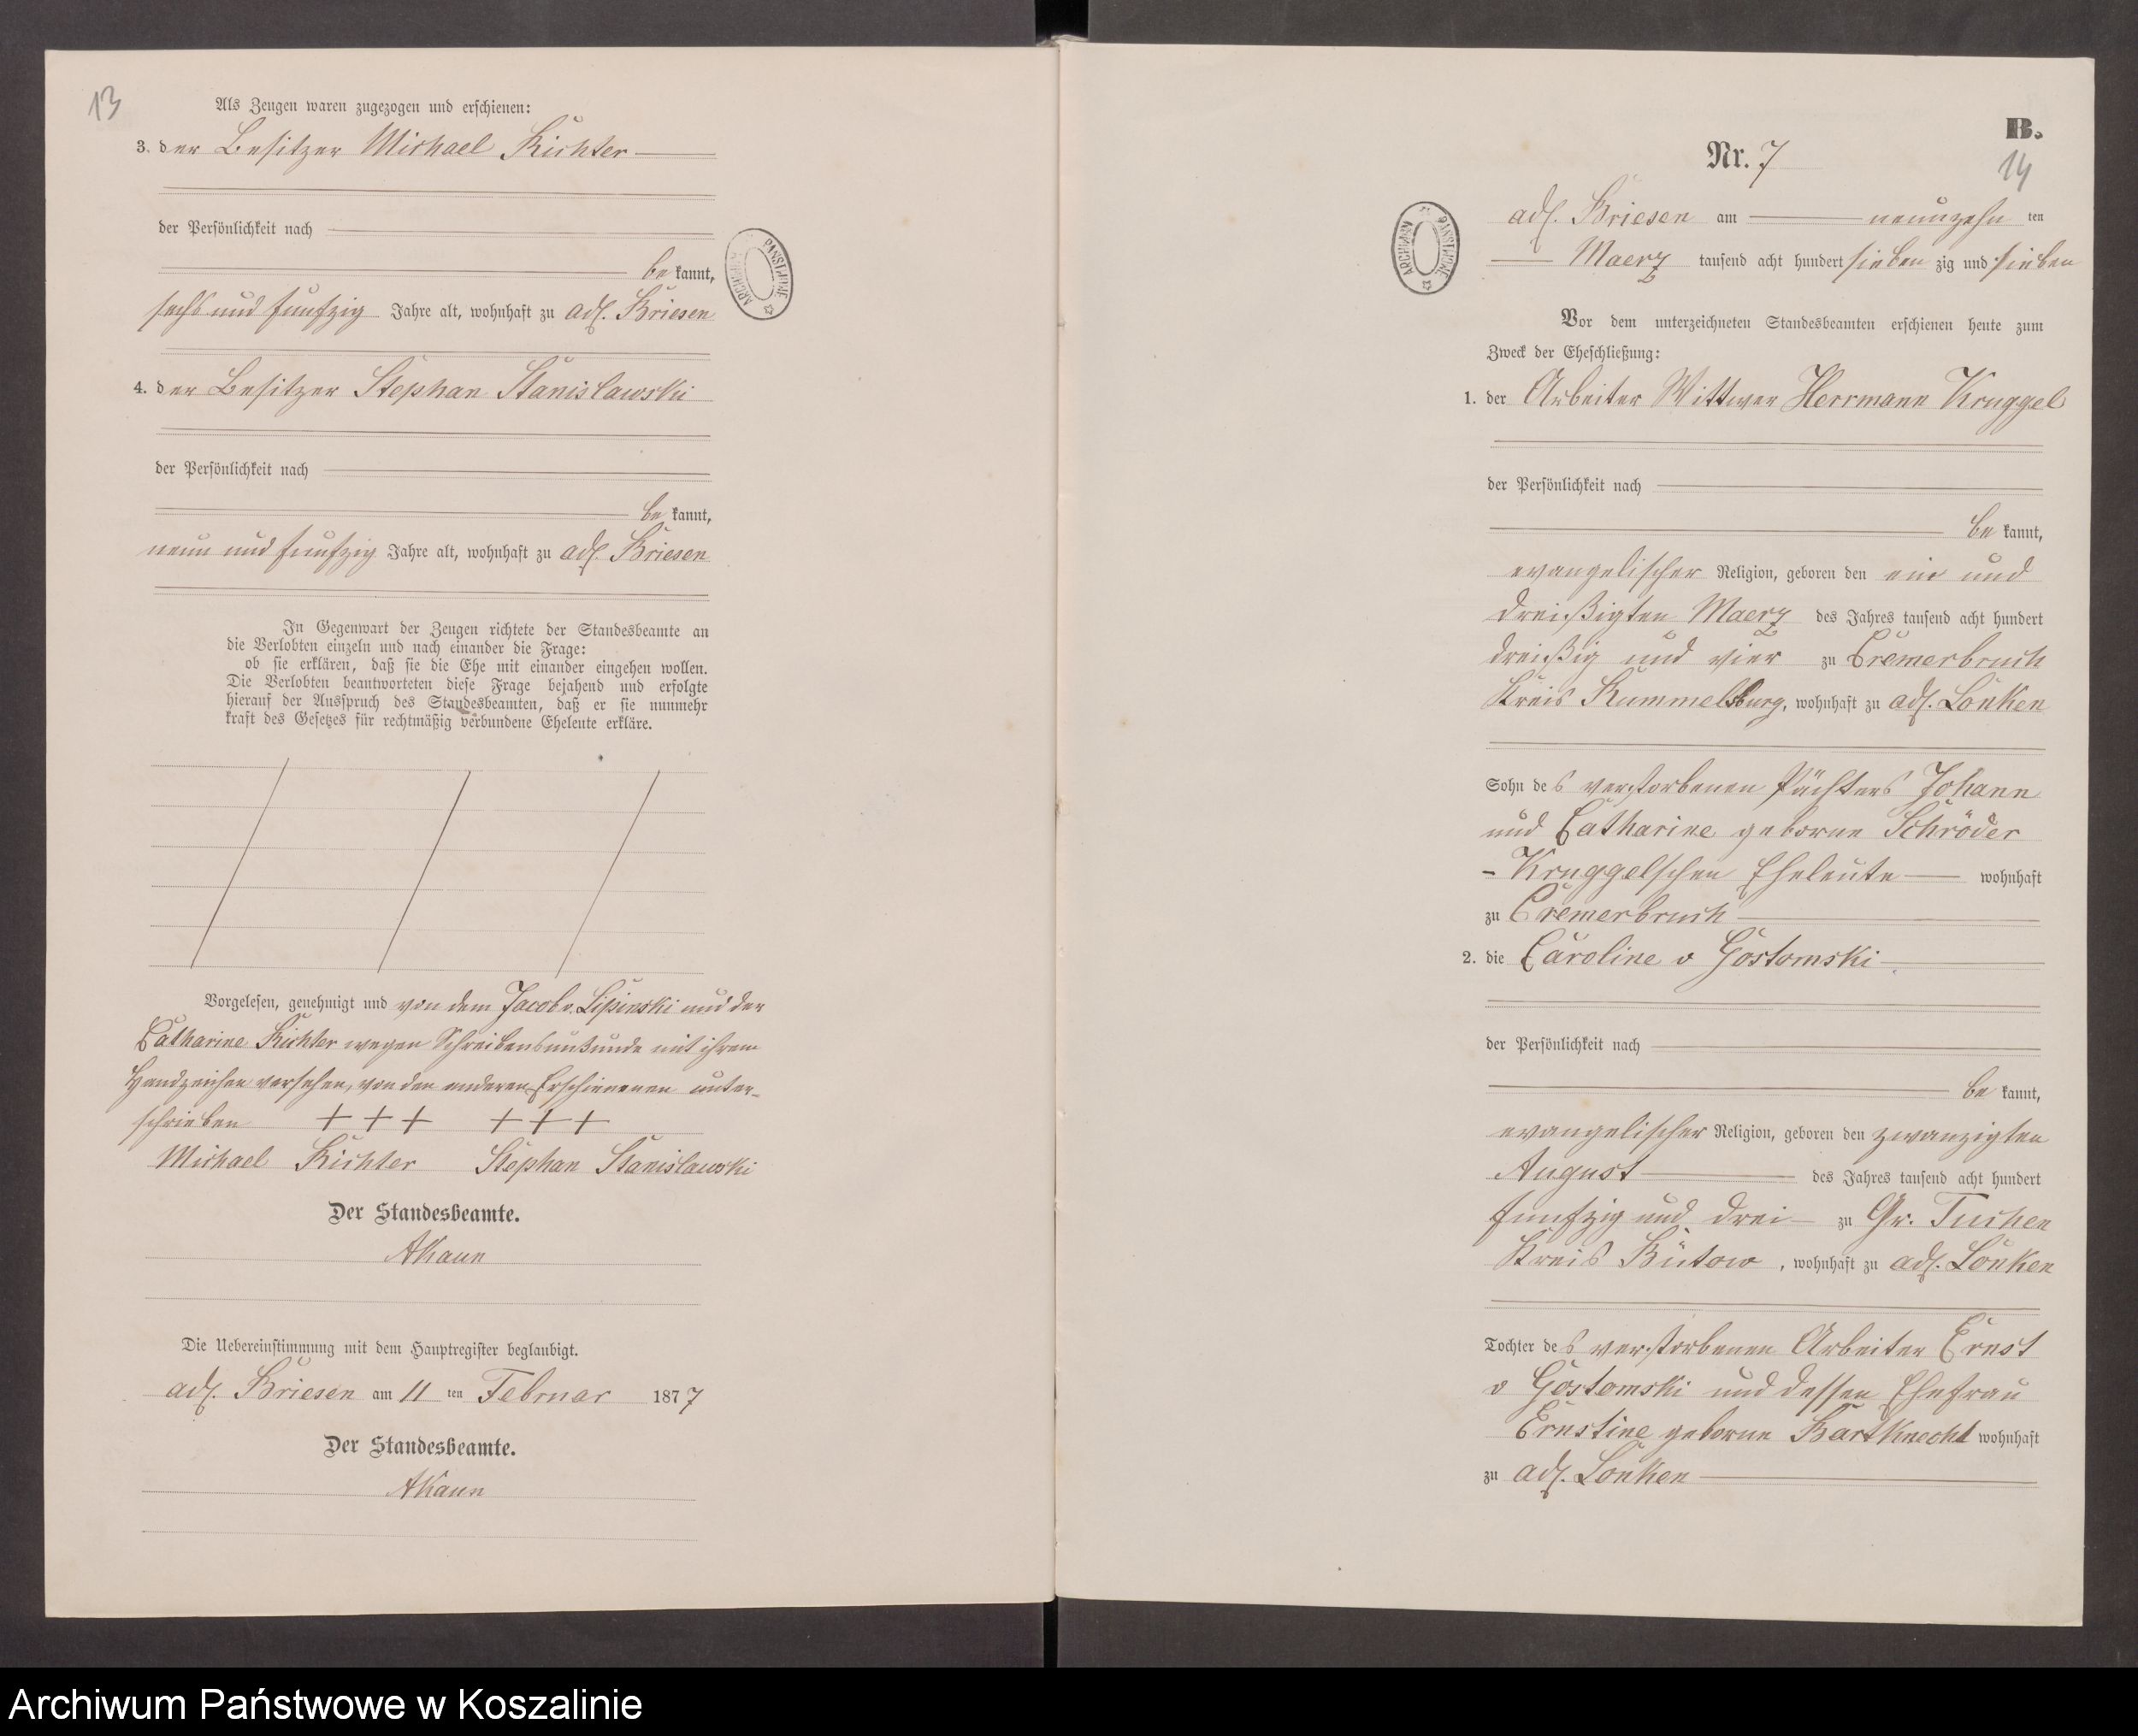 13
Als Zeugen waren zugezogen und erschienen:
3. der Besitzer Michael Richter
der Persönlichkeit nach
be kannt,
sechs und funfzig Jahre alt, wohnhaft zu adl. Briesen
4. der Besitzer Stephan Stanislawski
der Persönlichkeit nach
be kannt,
neun und funfzig Jahre alt, wohnhaft zu adl. Briesen
In Gegenwart der Zeugen richtete der Standesbeamte an
die Verlobten einzeln und nach einander die Frage:
ob sie erklären, daß sie die Ehe mit einander eingehen wollen.
Die Verlobten beantworteten diese Frage bejahend und erfolgte
hierauf der Ausspruch des Standesbeamten, daß er sie nunmehr
kraft des Gesetzes für rechtmäßig verbundene Eheleute erkläre.
Vorgelesen, genehmigt und von dem Jacob v. Lipinski und der
Catharine Richter wegen Schreibensunkunde mit ihrem
Handzeichen versehen, von den anderen Erschienenen unter-
schrieben +++ +++
Michael Richter Stephan Stanislawski
Der Standesbeamte.
AKaun
Die Uebereinstimmung mit dem Hauptregister beglaubigt.
adl. Briesen am 11 ten Februar 1877
Der Standesbeamte.
AKaun
ARCHIWUM PAŃSTWOWE
B.
Nr. 7
14
adl. Briesen am neunzehn ten
Maerz tausend acht hundert sieben zig und sieben
ARCHIWUM PAŃSTWOWE
Vor dem unterzeichneten Standesbeamten erschienen heute zum
Zweck der Eheschließung:
1. der Arbeiter Wittwer Herrmann Kruggel
der Persönlichkeit nach
be kannt,
evangelischer Religion, geboren den ein und
dreißigten Maerz des Jahres tausend acht hundert
dreißig und vier zu Cremerbruch
Kreis Rummelsburg, wohnhaft zu adl. Lonken
Sohn des verstorbenen Pächters Johann
und Catharine geborne Schröder
- Kruggelschen Eheleute wohnhaft
zu Cremerbruch
2. die Caroline v Gostomski
der Persönlichkeit nach
be kannt,
evangelischer Religion, geboren den zwanzigten
August des Jahres tausend acht hundert
funfzig und drei zu Gr. Tuchen
Kreis Bütow, wohnhaft zu adl. Lonken
Tochter des verstorbenen Arbeiter Ernst
v Gostomski und dessen Ehefrau
Ernstine geborne Bartknecht wohnhaft
zu adl. Lonken
Archiwum Państwowe w Koszalinie